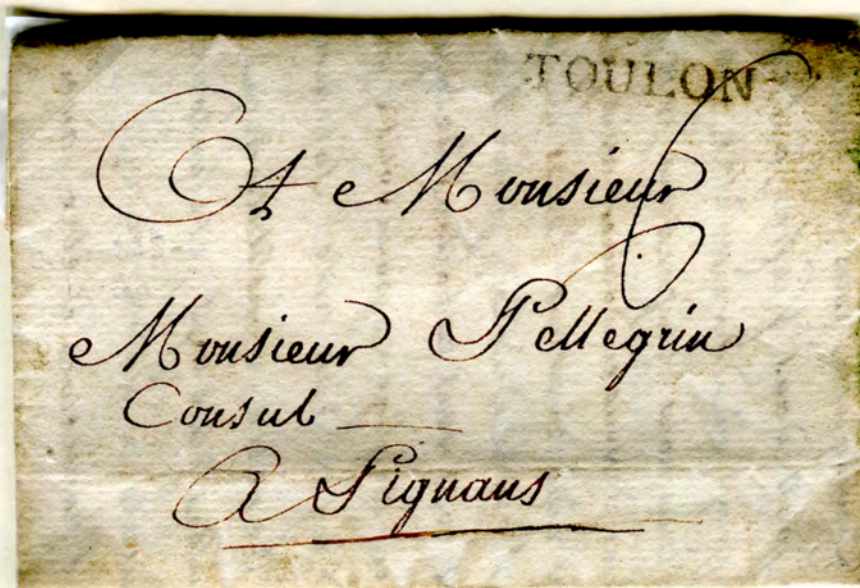 TOULON
A Monsieur
6
Monsieur Pellegrin
Consul
A Pignans